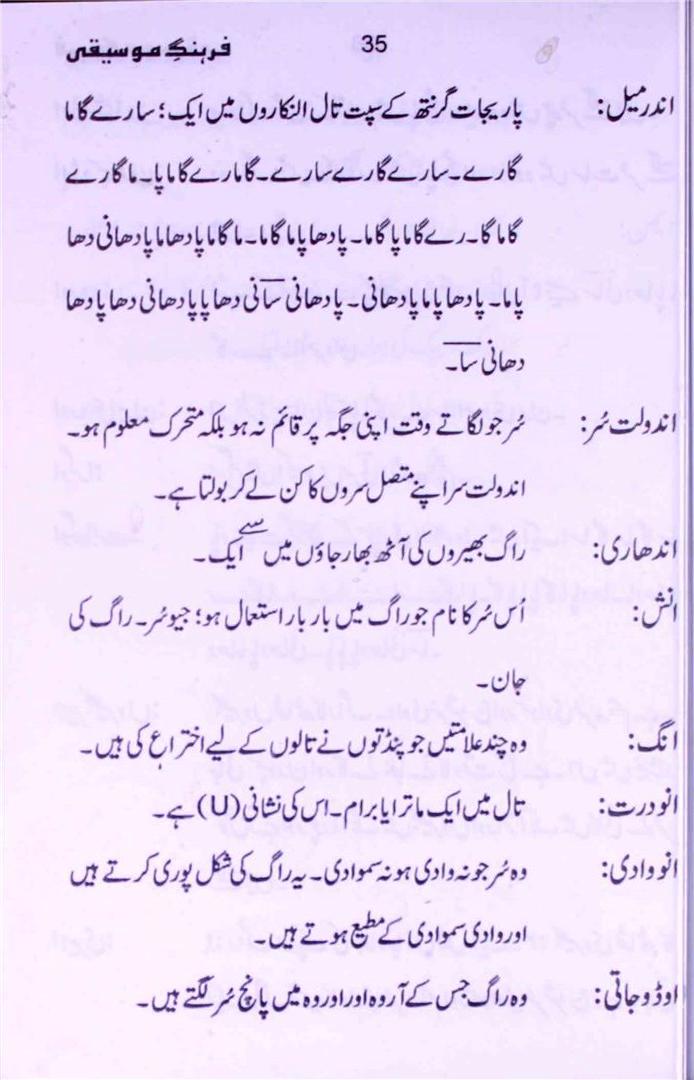 فرہنگِ موسیقی 35
اندرمیل: پاریجات گرنتھ کے سپت تال النکاروں میں ایک؛ سارے گاما
گارے۔ سارے گارے سارے۔ گامارے گاماپا۔ ماگارے
گاماگا۔ رے گاماپاگاما۔ پادھاپاماگاما۔ ماگاماپادھاماپادھانی دھا
پاما۔ پادھاپاماپادھانی۔ پادھانی سانی دھاپاپادھانی دھاپادھا
دھانی سا۔
اندولت سُر: سُر جو لگاتے وقت اپنی جگہ پر قائم نہ ہو بلکہ متحرک معلوم ہو۔
اندولت سر اپنے متصل سروں کا کن لے کر بولتا ہے۔
اندھاری: راگ بھیروں کی آٹھ بھارجاؤں میں سے ایک۔
انش: اس سُر کا نام جو راگ میں بار بار استعمال ہو؛ جیو سُر۔ راگ کی
جان۔
انگ: وہ چند علامتیں جو پنڈتوں نے تالوں کے لیے اختراع کی ہیں۔
انودرت: تال میں ایک ماترا یا برام۔ اس کی نشانی (U) ہے۔
انووادی: وہ سُر جو نہ وادی ہو نہ سموادی۔ یہ راگ کی شکل پوری کرتے ہیں
اور وادی سموادی کے مطیع ہوتے ہیں۔
اوڈوجاتی: وہ راگ جس کے آروہ اور اوروہ میں پانچ سُر لگتے ہیں۔